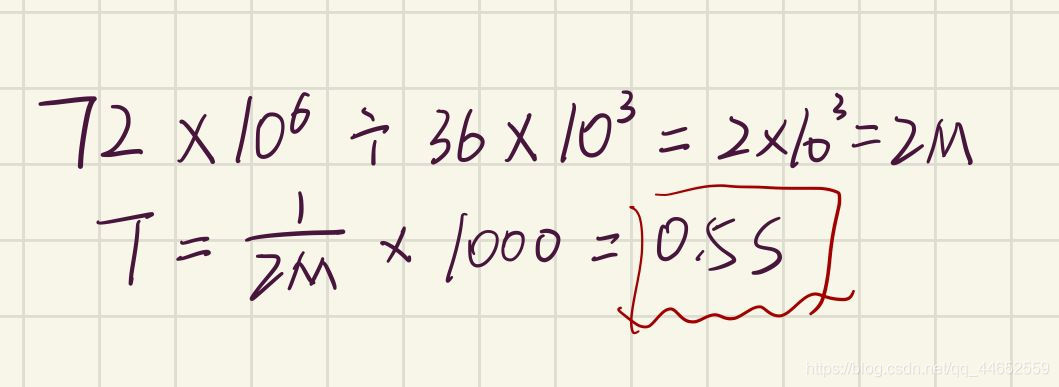 72 × 10⁶ ÷ 36 × 10³ = 2×10³ = 2M
T = 1/2M × 1000 = 0.5S
https://blog.csdn.net/qq_44652559